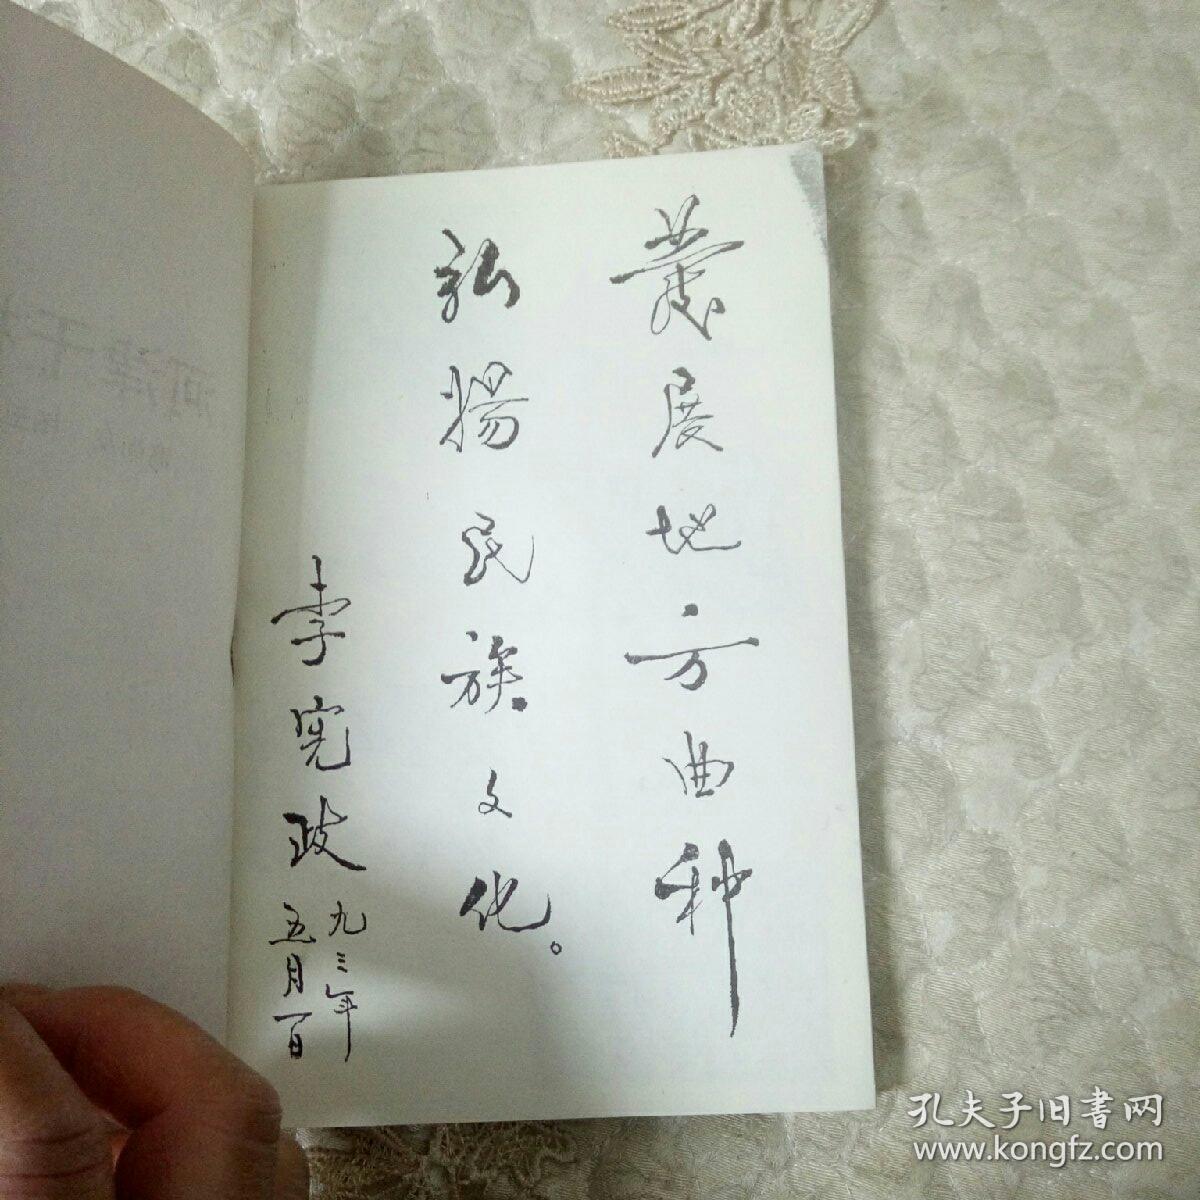 發展地方曲种
弘揚民族文化。
李宪政
九三年
五月一日
孔夫子旧書网
www.kongfz.com